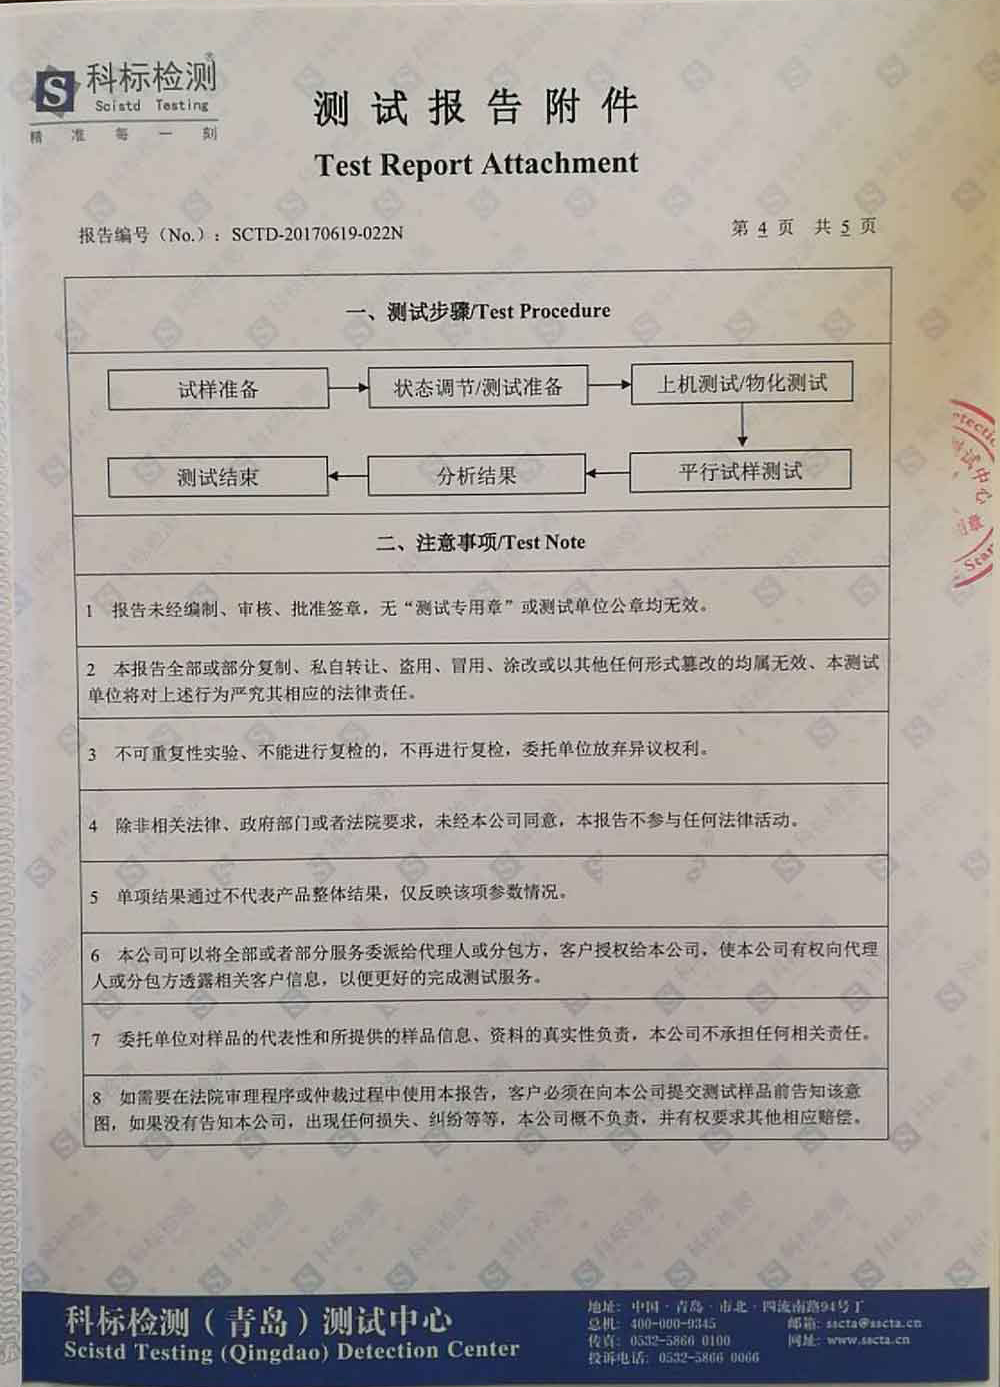 科标检测
Scistd Testing
精 准 每 一 刻
测试报告附件
Test Report Attachment
报告编号（No.）：SCTD-20170619-022N
第 4 页 共 5 页
一、测试步骤/Test Procedure
试样准备
状态调节/测试准备
上机测试/物化测试
测试结束
分析结果
平行试样测试
二、注意事项/Test Note
1 报告未经编制、审核、批准签章，无“测试专用章”或测试单位公章均无效。
2 本报告全部或部分复制、私自转让、盗用、冒用、涂改或以其他任何形式篡改的均属无效、本测试
单位将对上述行为严究其相应的法律责任。
3 不可重复性实验、不能进行复检的，不再进行复检，委托单位放弃异议权利。
4 除非相关法律、政府部门或者法院要求，未经本公司同意，本报告不参与任何法律活动。
5 单项结果通过不代表产品整体结果，仅反映该项参数情况。
6 本公司可以将全部或者部分服务委派给代理人或分包方，客户授权给本公司，使本公司有权向代理
人或分包方透露相关客户信息，以便更好的完成测试服务。
7 委托单位对样品的代表性和所提供的样品信息、资料的真实性负责，本公司不承担任何相关责任。
8 如需要在法院审理程序或仲裁过程中使用本报告，客户必须在向本公司提交测试样品前告知该意
图，如果没有告知本公司，出现任何损失、纠纷等等，本公司概不负责，并有权要求其他相应赔偿。
科标检测（青岛）测试中心
Scistd Testing (Qingdao) Detection Center
地址：中国·青岛·市北·四流南路94号丁
总机：400-000-9345 邮箱：sscta@sscta.cn
传真：0532-5866 0100 网址：www.sscta.cn
投诉电话：0532-5866 0066
测试中心